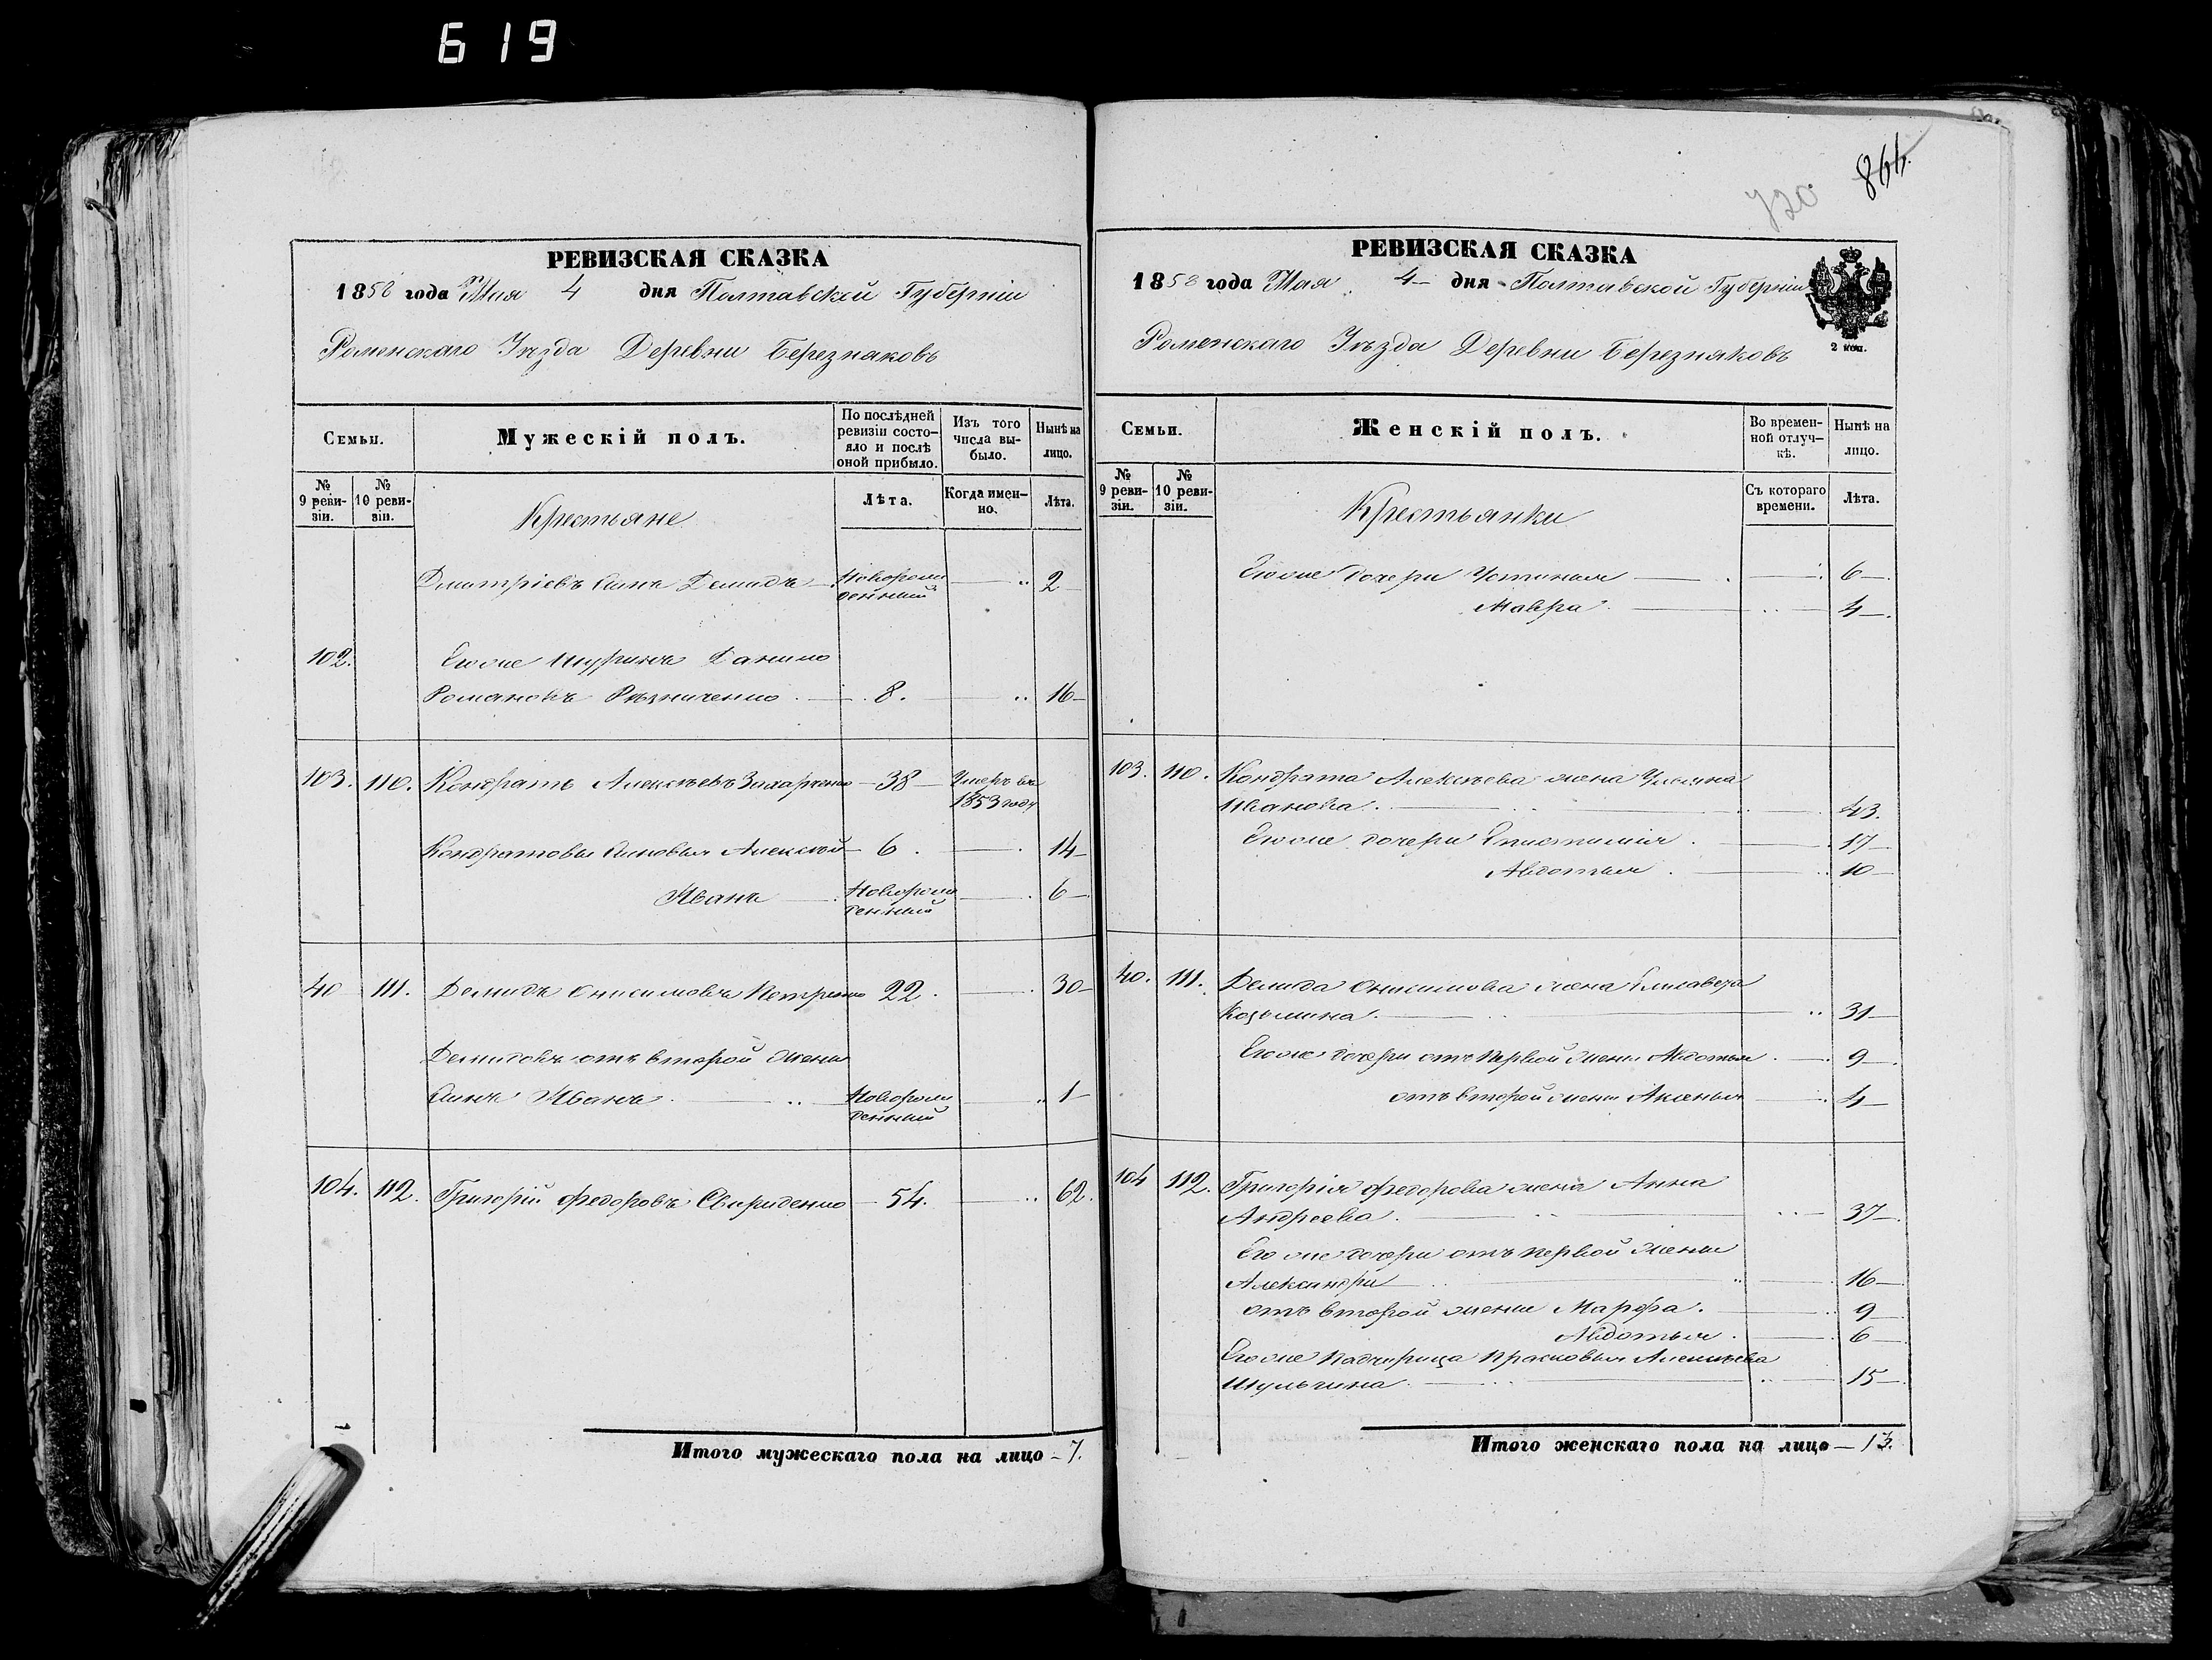 619
864.
720
РЕВИЗСКАЯ СКАЗКА
1858 года Мая 4 дня Полтавской Губерніи
Роменскаго Уѣзда Деревни Березняковъ
Семьи.
Мужескій полъ.
По послѣдней ревизіи состояло и послѣ оной прибыло.
Изъ того числа выбыло.
Нынѣ на лицо.
№ 9 ревизіи.
№ 10 ревизіи.
Крестьяне
Лѣта.
Когда именно.
Лѣта.
Дмитріевъ сынъ Демидъ Новорожденный 2
102. Егоже шуринъ Данило
Романовъ Резниченко 8. 16
103. 110. Кондратъ Алексѣевъ Захарченко 38 Умеръ въ 1853 году
Кондратовы сыновья Алексѣй 6. 14
Иванъ Новорожденный 6
40 111. Демидъ Онисимовъ Петренко 22. 30
Демидовъ отъ второй жены
сынъ Иванъ Новорожденный 1
104. 112. Григорій Федоровъ Свириденко 54. 62.
Итого мужескаго пола на лицо 7.
РЕВИЗСКАЯ СКАЗКА
1858 года Мая 4 дня Полтавской Губерніи
Роменскаго Уѣзда Деревни Березняковъ
2 коп.
Семьи.
Женскій полъ.
Во временной отлучкѣ.
Нынѣ на лицо.
№ 9 ревизіи.
№ 10 ревизіи.
Крестьянки
Съ котораго времени.
Лѣта.
Егоже дочери Устинья 6
Мавра 4
103. 110. Кондрата Алексѣева жена Ульяна
Иванова. 43.
Егоже дочери Епистимія 17
Авдотья 10
40. 111. Демида Онисимова жена Елисавета
Козьмина. 31
Егоже дочери отъ первой жены Авдотья 9
отъ второй жены Аксенья 4
104 112. Григорія Федорова жена Анна
Андреева. 37
Егоже дочери отъ первой жены
Александра 16
отъ второй жены Марфа. 9
Авдотья. 6
Егоже Падчерица Прасковья Алексѣева
Шульгина. 15
Итого женскаго пола на лицо 13.